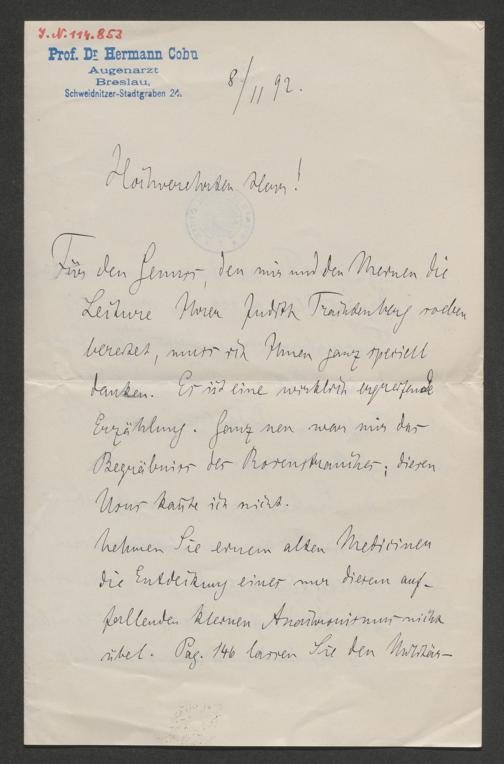 J.N. 114.853
Prof. Dr. Hermann Cohn
Augenarzt
Breslau,
Schweidnitzer-Stadtgraben
8/II 92.
Hochverehrter Herr!
Für den Genuss, den mir und den Meinen die
Lecture Ihrer Judith Trachtenberg soeben
bereitet, muss ich Ihnen ganz speciell
danken. Es ist eine wirklich ergreifende
Erzählung. Ganz neu war mir das
Begräbniss des Rosenstrauches; diesen
Usus kannte ich nicht.
Nehmen Sie einem alten Mediciner
die Entdeckung eines nur diesem auf-
fallenden kleinen Anachronismus nicht
übel. Pag. 146 lassen Sie den Militär-